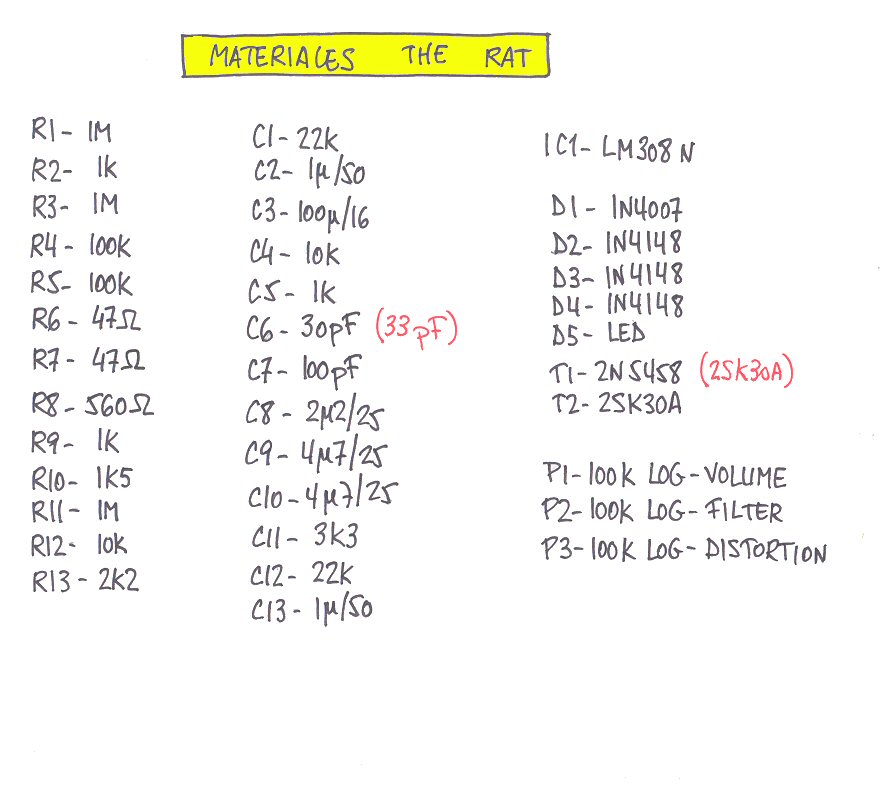 MATERIALES THE RAT
R1- 1M
R2- 1K
R3- 1M
R4- 100K
R5- 100K
R6- 47Ω
R7- 47Ω
R8- 560Ω
R9- 1K
R10- 1K5
R11- 1M
R12- 10K
R13- 2K2
C1- 22K
C2- 1µ/50
C3- 100µ/16
C4- 10K
C5- 1K
C6- 30pF (33pF)
C7- 100pF
C8- 2µ2/25
C9- 4µ7/25
C10- 4µ7/25
C11- 3K3
C12- 22K
C13- 1µ/50
IC1- LM308N
D1- 1N4007
D2- 1N4148
D3- 1N4148
D4- 1N4148
D5- LED
T1- 2N5458 (2SK30A)
T2- 2SK30A
P1- 100K LOG- VOLUME
P2- 100K LOG- FILTER
P3- 100K LOG- DISTORTION